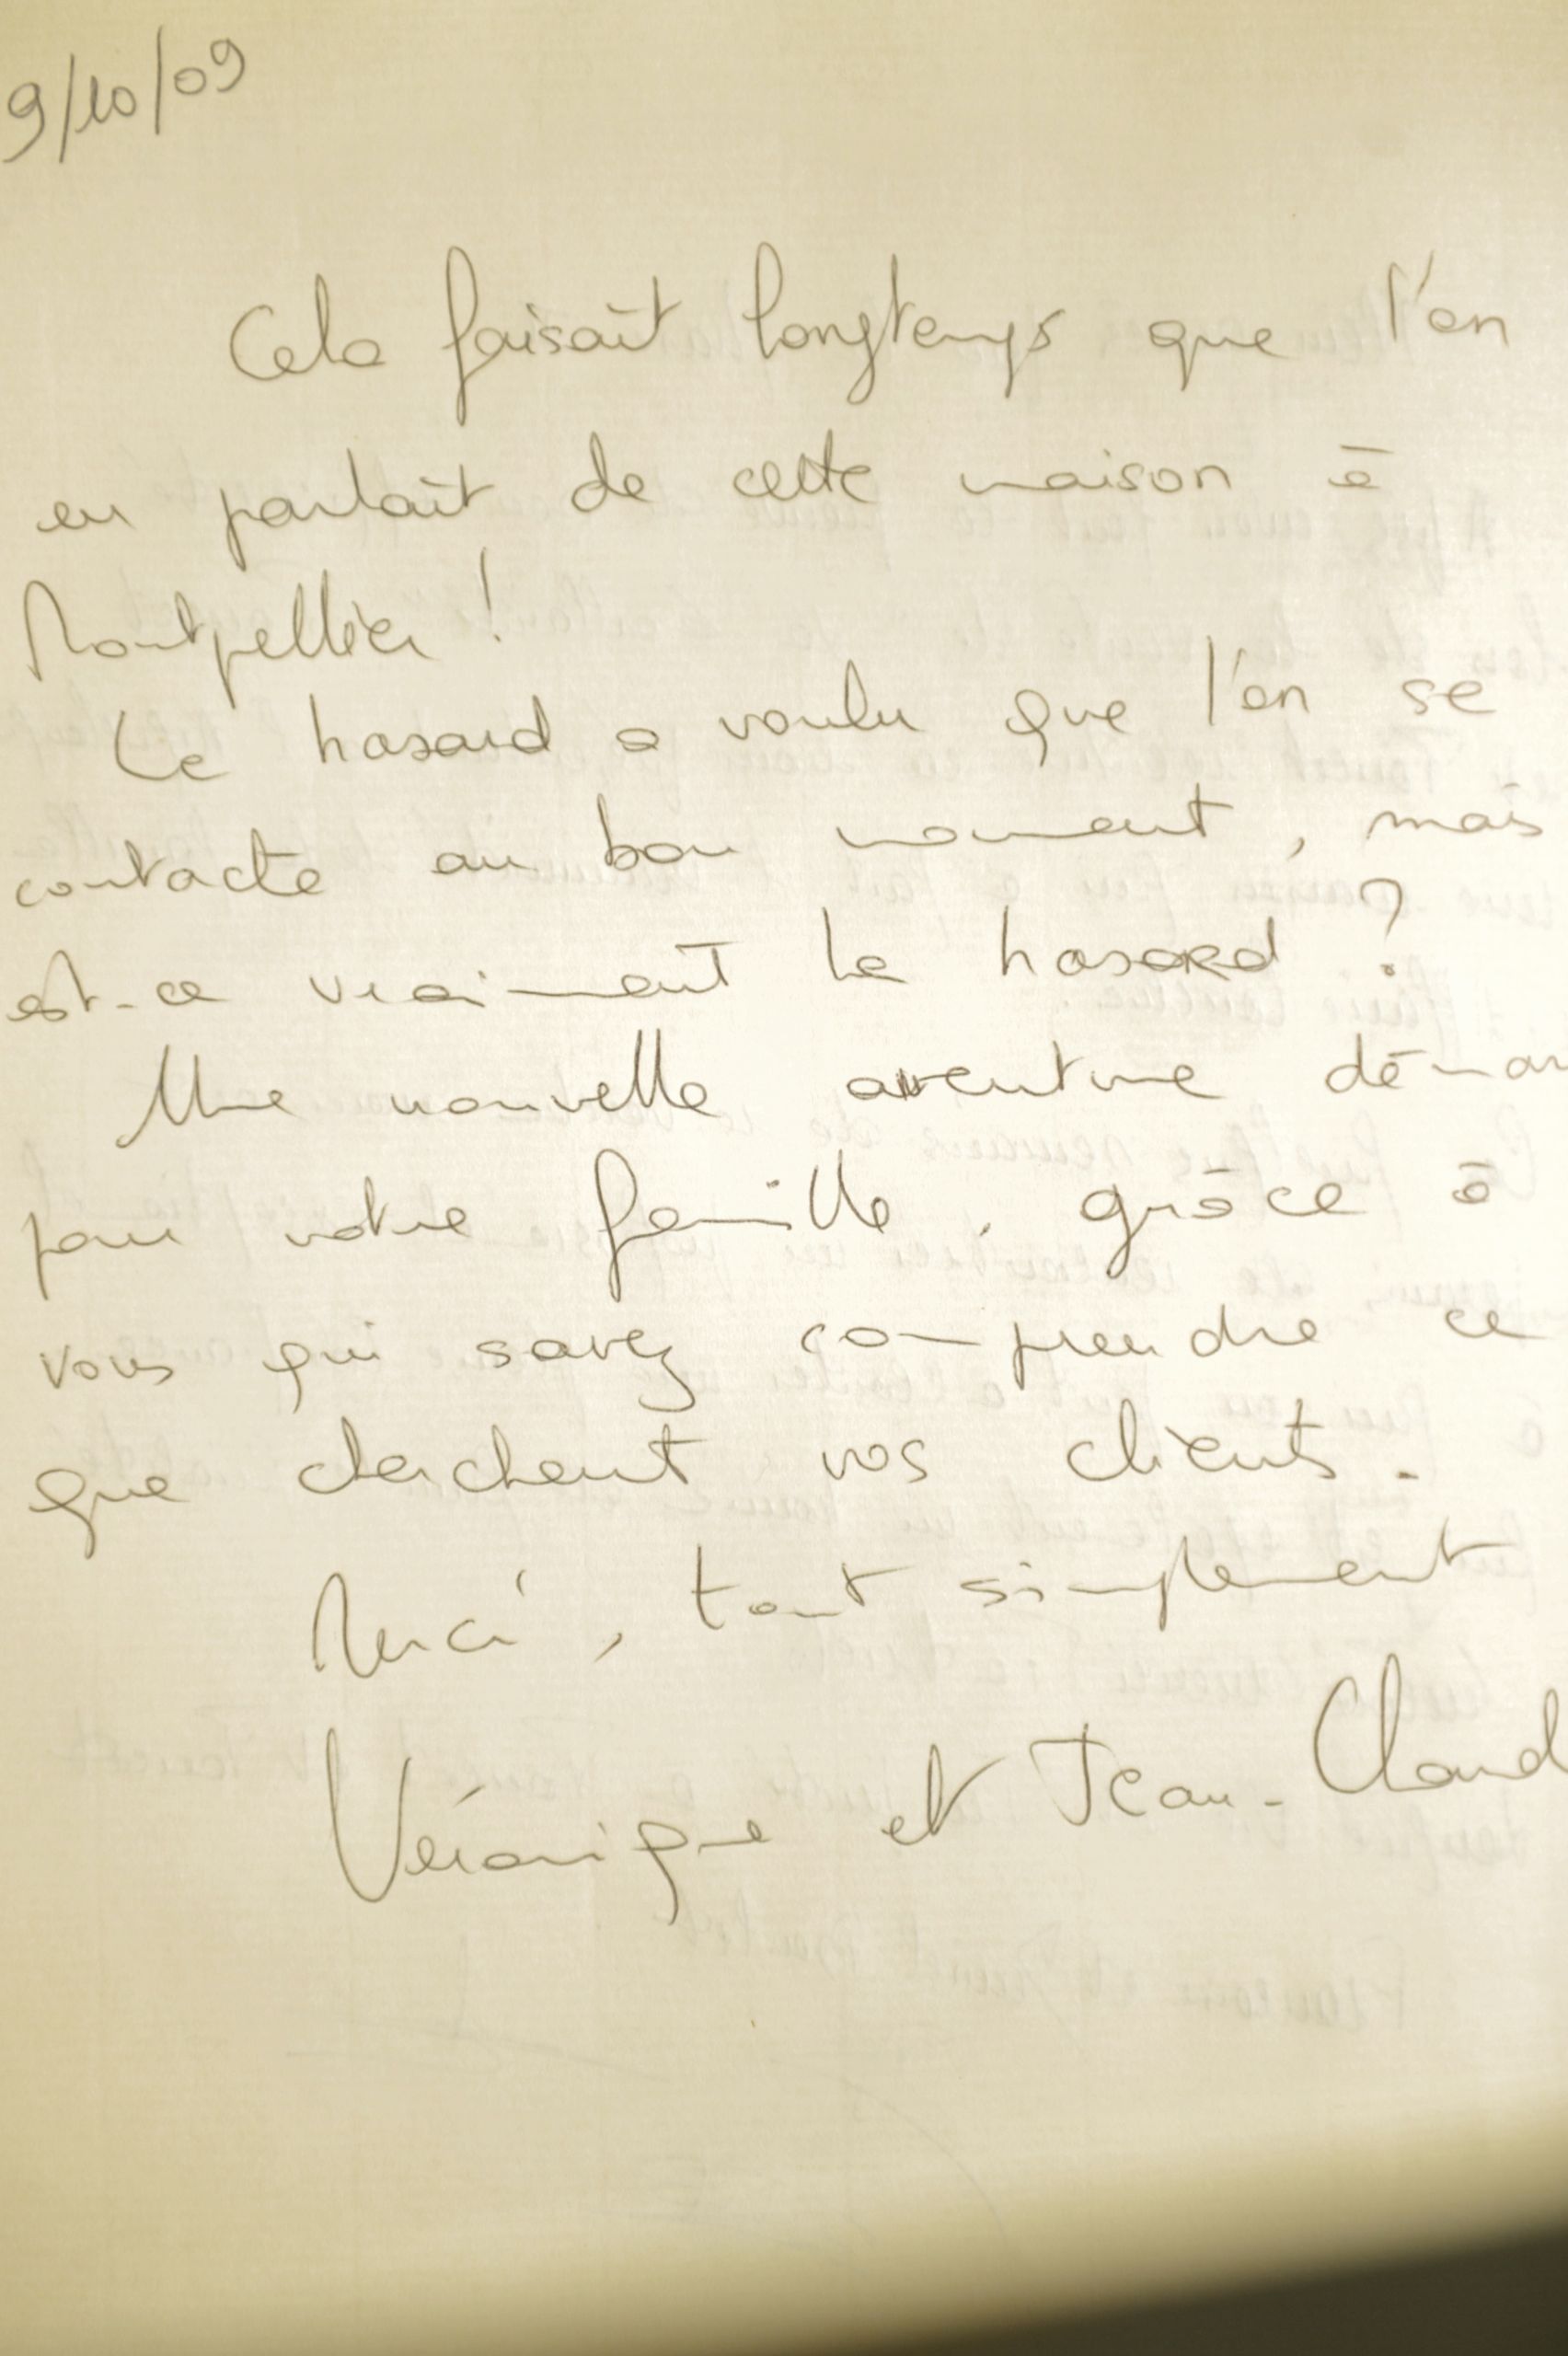 9/10/09
Cela faisait longtemps que l'on
en parlait de cette maison à
Montpellier !
Le hasard a voulu que l'on se
contacte au bon moment, mais
est-ce vraiment le hasard ?
Une nouvelle aventure démar
pour notre famille, grâce à
vous qui savez comprendre ce
que cherchent vos clients.
Merci, tout simplement
Véronique et Jean-Claud